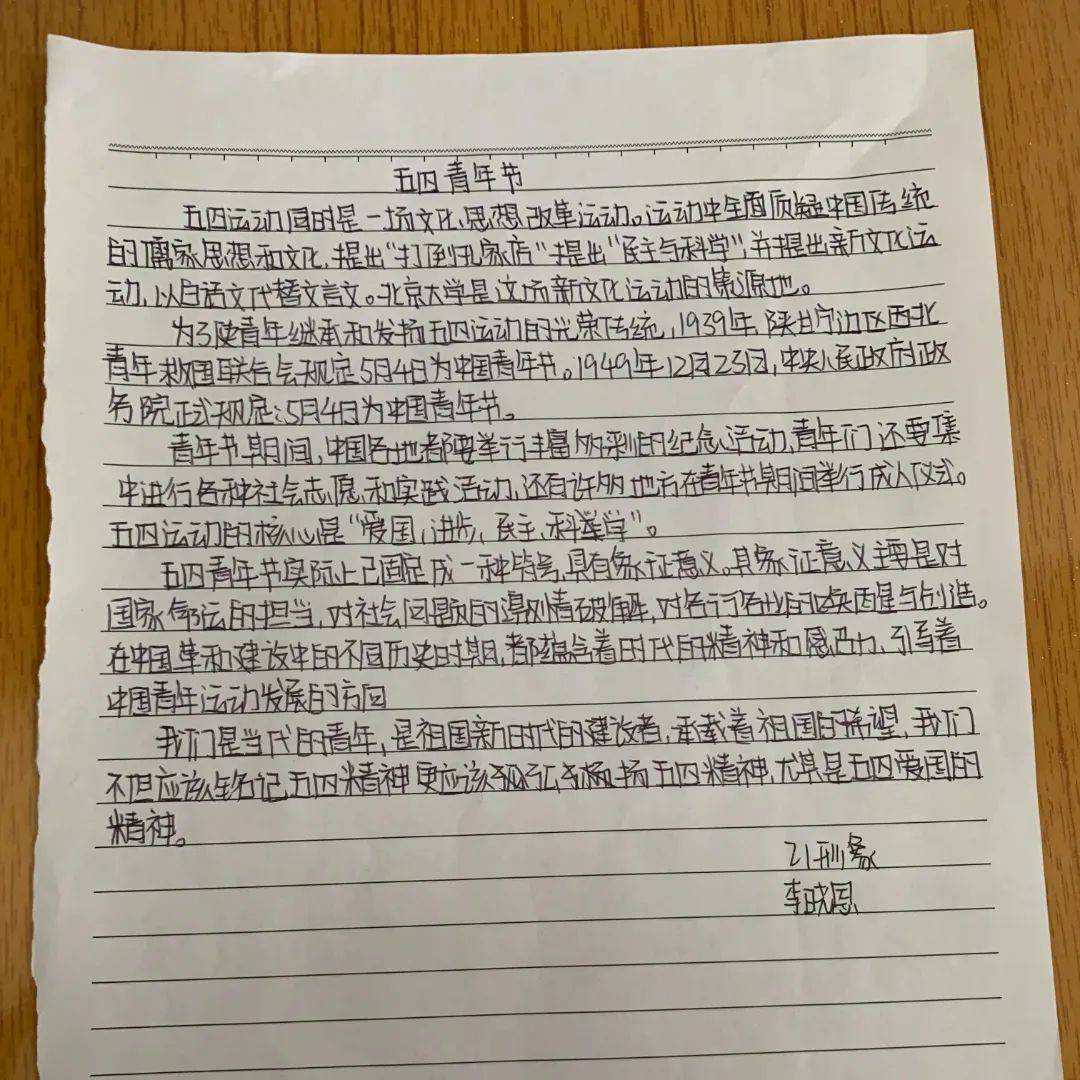 五四青年节
五四运动同时是一场文化、思想改革运动。运动中全面质疑中国传统
的儒家思想和文化,提出“打倒孔家店”提出“民主与科学”,并提出新文化运
动,以白话文代替文言文。北京大学是这场新文化运动的源地。
为了陕青年继承和发扬五四运动的光荣传统,1939年陕甘宁边区西北
青年救国联合会规定5月4日为中国青年节。1949年12月23日,中央人民政府政
务院正式规定:5月4日为中国青年节。
青年节期间,中国各地都要举行丰富多彩的纪念活动,青年们还要集
中进行各种社会志愿和实践活动,还有许多地方在青年节期间举行成人仪式。
五四运动的核心是“爱国,进步,民主,科学”。
五四青年节实际上已固定成一种符号,具有象征意义。其象征意义主要是对
国家命运的担当,对社会问题的破解,对各行各业的与创造。
在中国革和建设中的不同历史时期,都蕴含着时代的精神和感召力,引导着
中国青年运动发展的方向
我们是当代的青年,是祖国新时代的建设者,承载着祖国的希望,我们
不但应该铭记五四精神更应该弘扬五四精神,尤其是五四爱国的
精神。
21刑
李晓恩